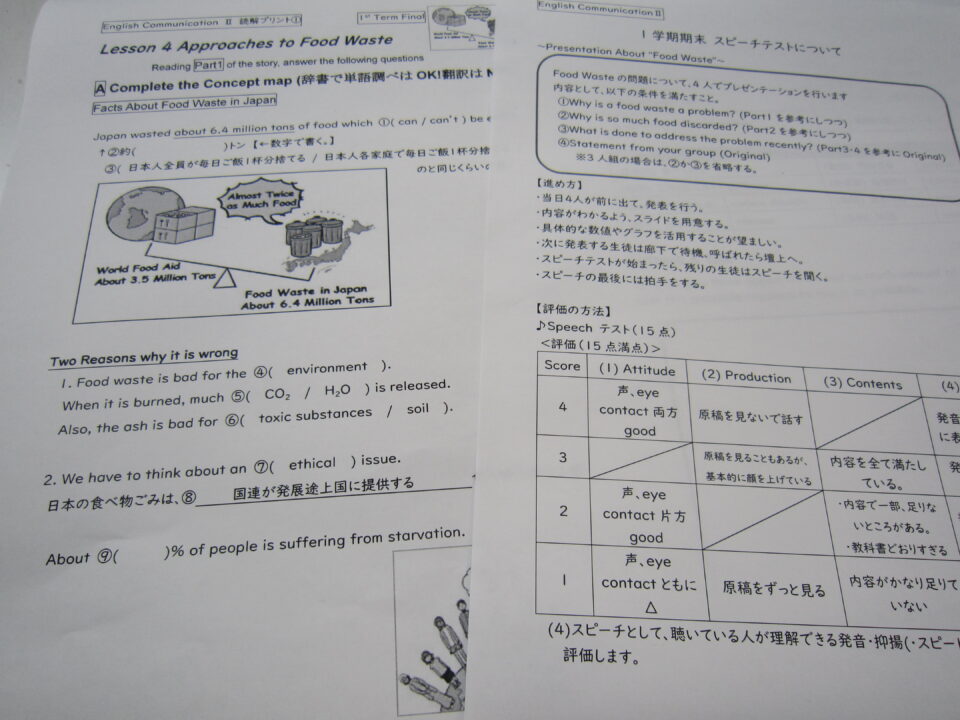 English Communication Ⅱ 読解プリント①
1st Term Final
Lesson 4 Approaches to Food Waste
Reading Part1 of the story, answer the following questions
A Complete the Concept map (辞書で単語調べは OK!翻訳は
Facts About Food Waste in Japan
Japan wasted about 6.4 million tons of food which ①( can / can't ) be
↑②約( )トン 【←数字で書く。】
③( 日本人全員が毎日ご飯1杯分捨てる / 日本人各家庭で毎日ご飯1杯分捨
のと同じくらい
Almost Twice
as Much Food
World Food Aid
About 3.5 Million Tons
Food Waste in Japan
About 6.4 Million Tons
Two Reasons why it is wrong
1. Food waste is bad for the ④( environment ).
When it is burned, much ⑤( CO₂ / H₂O ) is released.
Also, the ash is bad for ⑥( toxic substances / soil ).
2. We have to think about an ⑦( ethical ) issue.
日本の食べ物ごみは、⑧ 国連が発展途上国に提供する
About ⑨( )% of people is suffering from starvation.
English Communication Ⅱ
1 学期期末 スピーチテストについて
~Presentation About "Food Waste"~
Food Waste の問題について、4 人でプレゼンテーションを行います
内容として、以下の条件を満たすこと。
①Why is a food waste a problem? (Part1 を参考にしつつ)
②Why is so much food discarded? (Part2 を参考にしつつ)
③What is done to address the problem recently? (Part3・4 を参考に Original)
④Statement from your group (Original)
※3 人組の場合は、②か③を省略する。
【進め方】
・当日4人が前に出て、発表を行う。
・内容がわかるよう、スライドを用意する。
・具体的な数値やグラフを活用することが望ましい。
・次に発表する生徒は廊下で待機、呼ばれたら壇上へ。
・スピーチテストが始まったら、残りの生徒はスピーチを聞く。
・スピーチの最後には拍手をする。
【評価の方法】
♪Speech テスト(15 点)
<評価(15 点満点)>
Score (1) Attitude (2) Production (3) Contents (4)
4 声、eye contact 両方 good 原稿を見ないで話す 発音 に表
3 原稿を見ることもあるが、基本的に顔を上げている 内容を全て満たしている。 発
2 声、eye contact 片方 good ・内容で一部、足りないところがある。 ・教科書どおりすぎる
1 声、eye contact ともに △ 原稿をずっと見る 内容がかなり足りていない
(4)スピーチとして、聴いている人が理解できる発音・抑揚(・スピー
評価します。